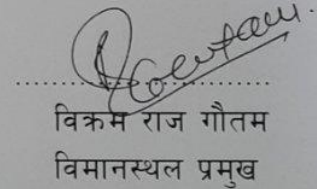 विक्रम राज गौतम
विमानस्थल प्रमुख